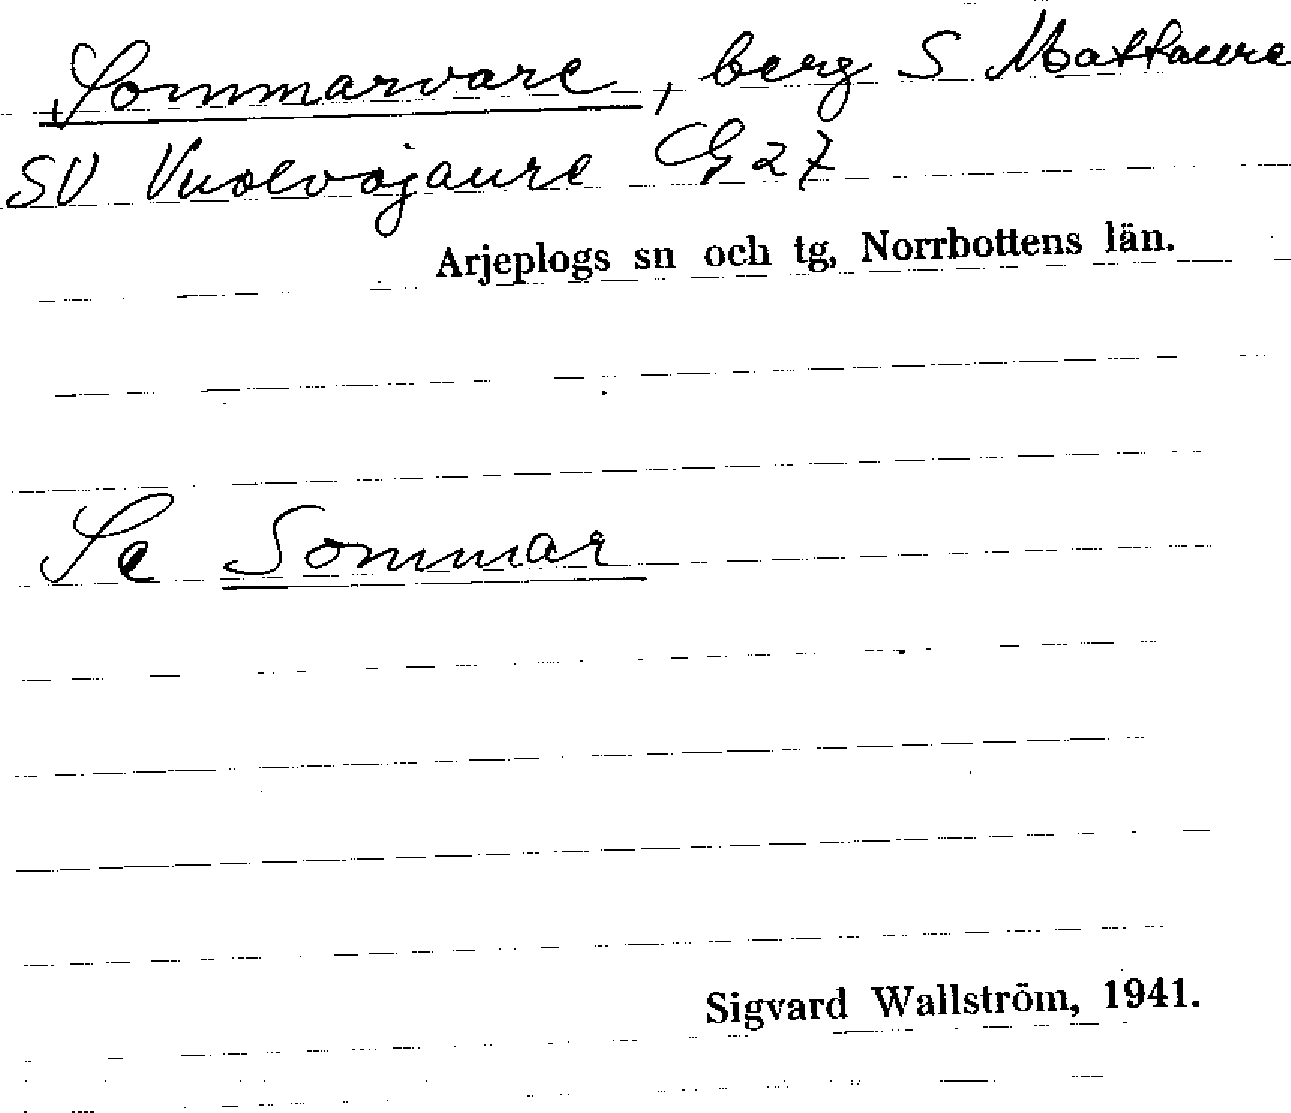 Sommarvare, berg S Mattaure
SV Vuolvojaure G 27
Arjeplogs sn och tg, Norrbottens län.
Se Sommar
Sigvard Wallström, 1941.